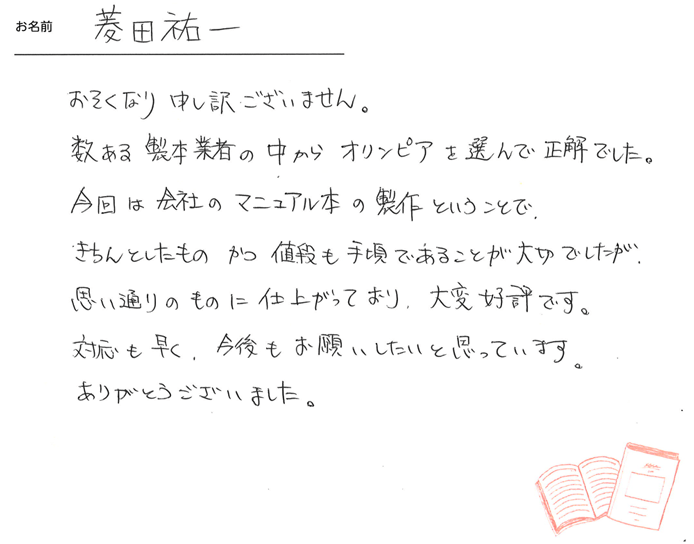 お名前 菱田祐一
おそくなり申し訳ございません。
数ある製本業者の中からオリンピアを選んで正解でした。
今回は会社のマニュアル本の製作ということで、
きちんとしたものかつ値段も手頃であることが大切でしたが、
思い通りのものに仕上がっており、大変好評です。
対応も早く、今後もお願いしたいと思っています。
ありがとうございました。